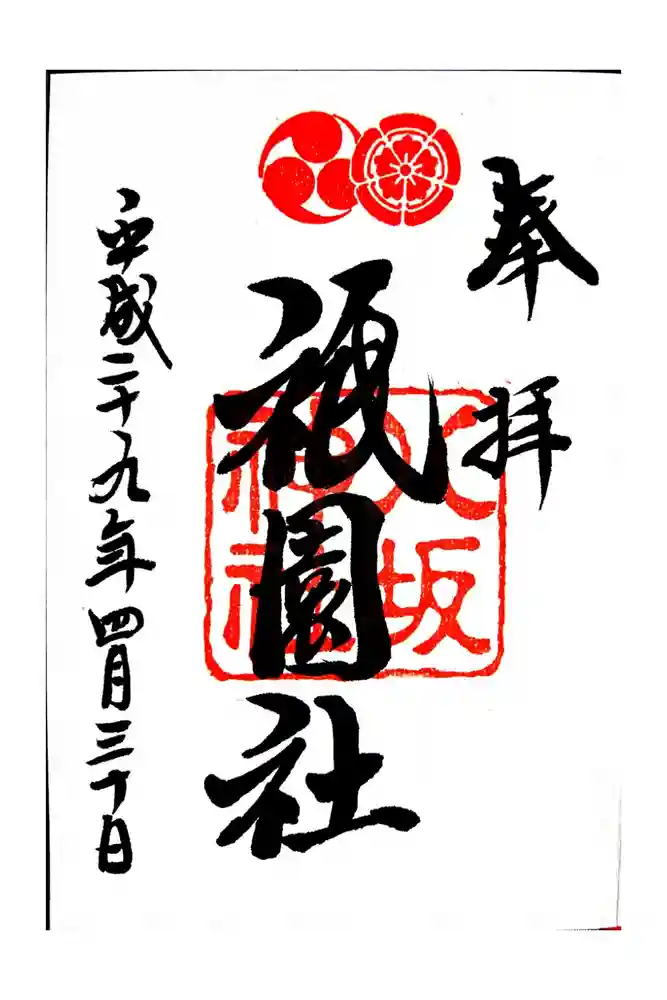 奉拝
祇園社
八坂
神社
平成二十九年四月三十日